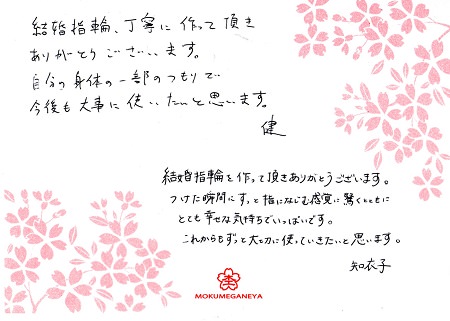 結婚指輪、丁寧に作って頂き
ありがとうございます。
自分の身体の一部のつもりで
今後も大事に使いたいと思います。
健
結婚指輪を作って頂きありがとうございます。
つけた瞬間にすっと指になじむ感覚に驚くとともに
とても幸せな気持ちでいっぱいです。
これからもずっと大切に使っていきたいと思います。
知衣子
MOKUMEGANEYA